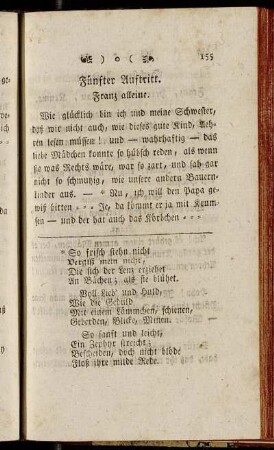 ) o (
155
Fünfter Auftritt.
Franz alleine.
Wie glücklich bin ich und meine Schwester,
daß wir nicht auch, wie dieses gute Kind, Aeh-
ren lesen müssen! und — wahrhaftig — das
liebe Mädchen konnte so hübsch reden, als wenn
sie was Rechts wäre, war so zart, und sah gar
nicht so schmuzig, wie unsere andern Bauern-
kinder aus. — * Nu, ich will den Papa ge-
wiß bitten . . . Je, da kömmt er ja mit Krum-
sen — und der hat auch das Körbchen . . .
* So frisch stehn nicht
Vergiß mein nicht,
Die sich der Lenz erziehet
An Bächen; als sie blühet.
Voll Lieb' und Huld,
Wie die Geduld
Mit einem Lämmchen, schienen,
Geberden, Blicke, Mienen.
So sanft und leicht,
Ein Zephyr streicht;
Bescheiden, doch nicht blöde
Floß ihre milde Rede.